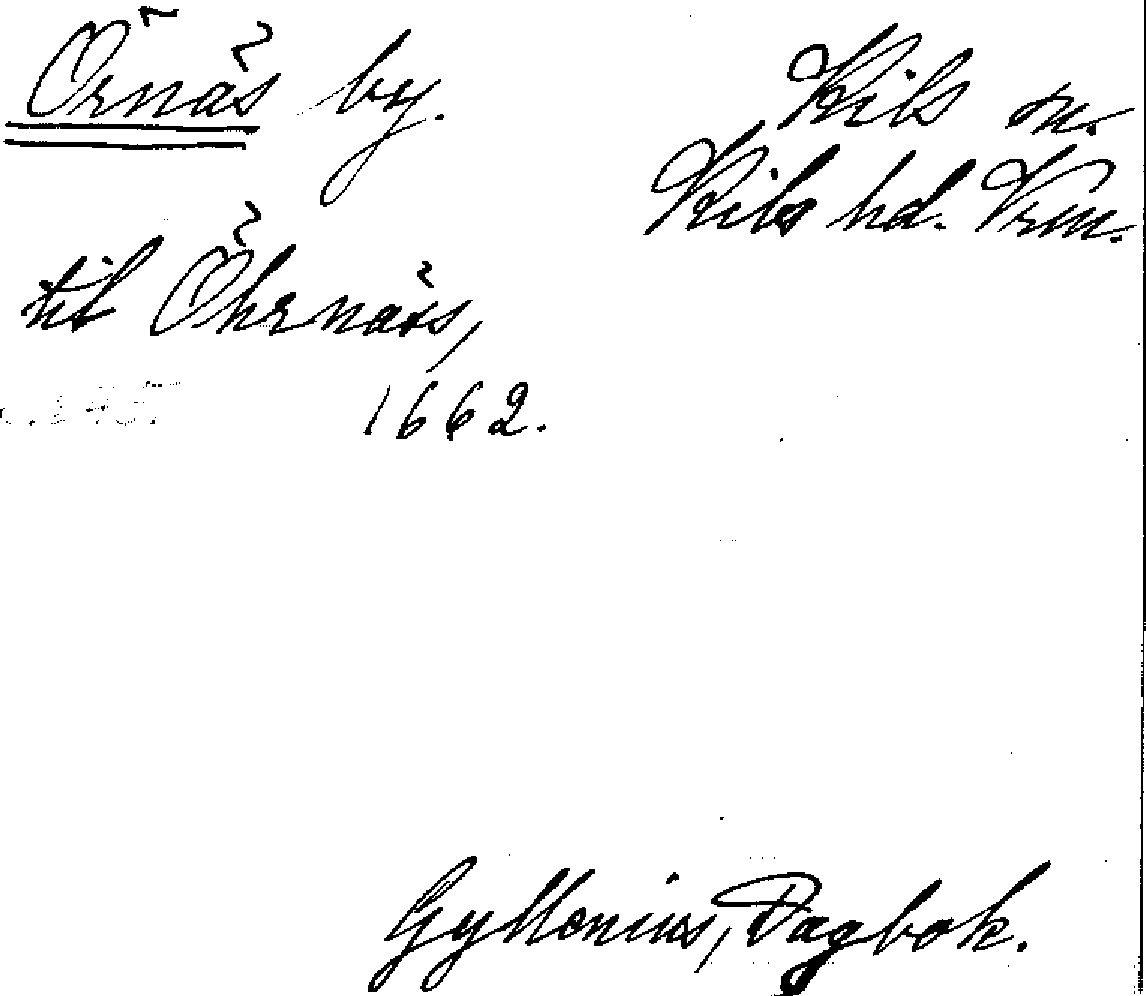 Örnäs by.
Kils sn.
Kils hd. Vrm.
til Öhrnäs,
1662.
Gyllenius, Dagbok.